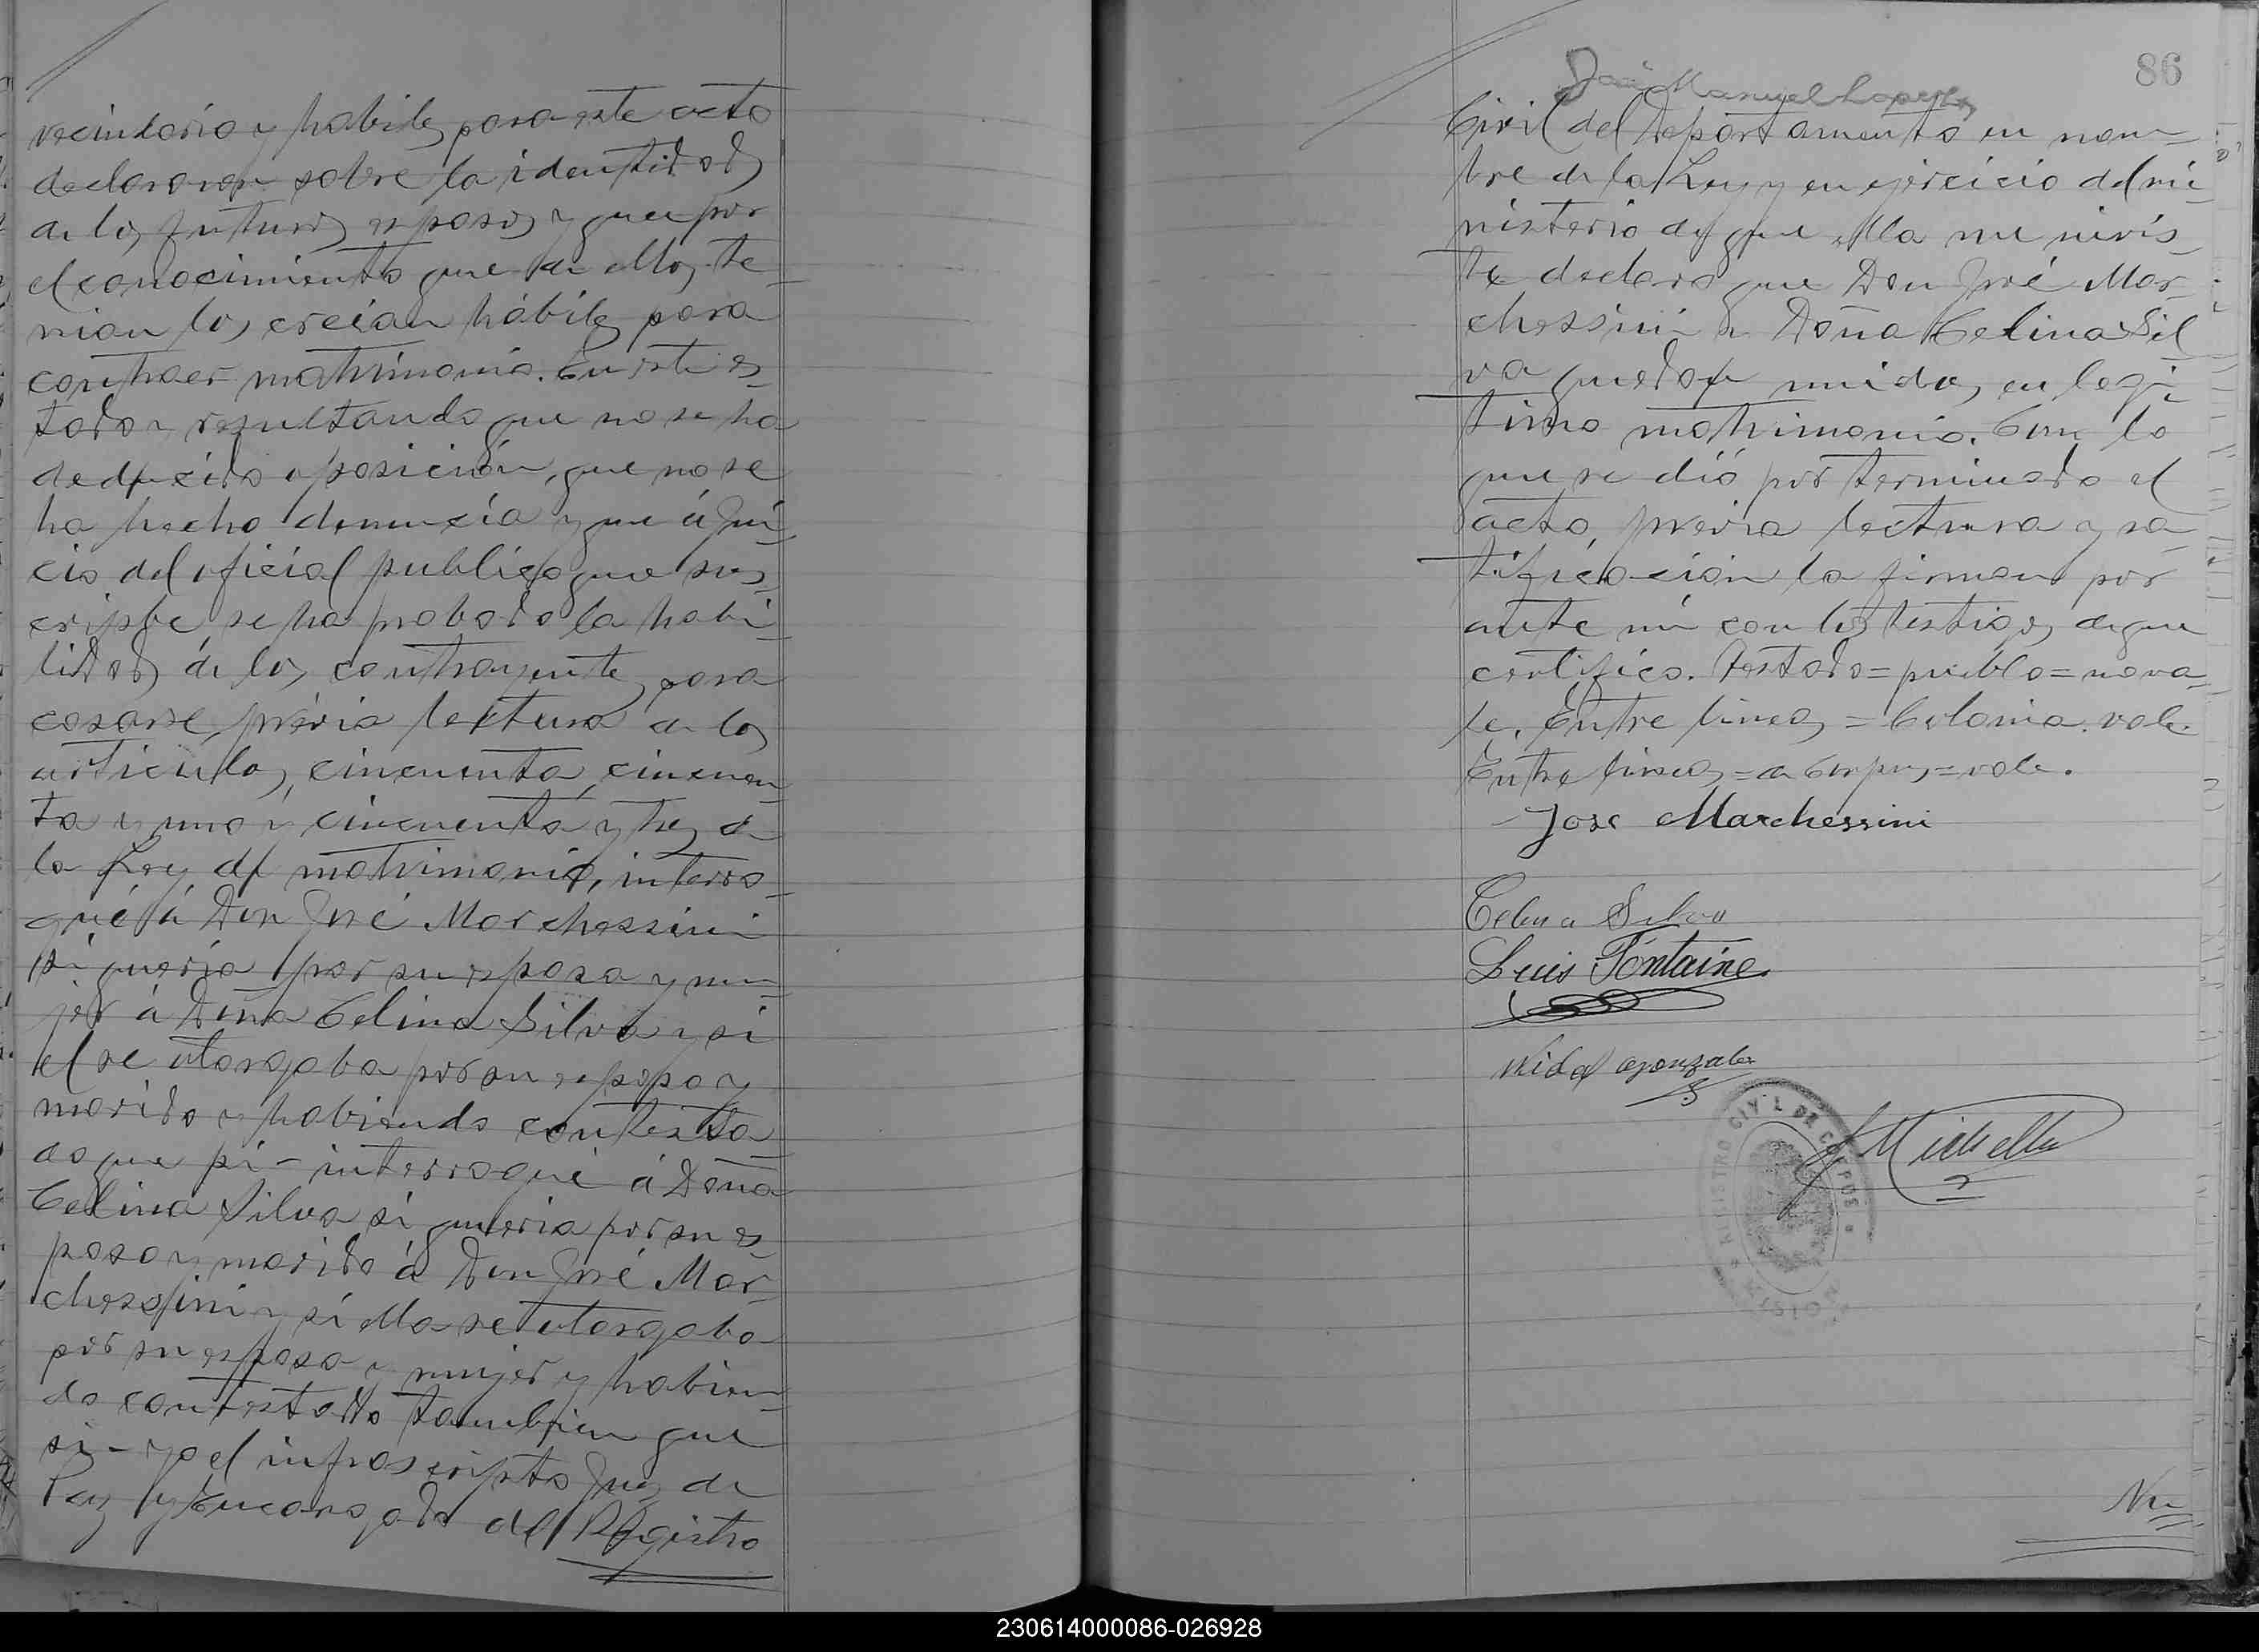 vecindario y habiles para este acto
declararon sobre la identidad
de los futuros esposos y que por
el conocimiento que de ellos te-
nian los creian hábiles para
contraer matrimonio. En este es-
tado y resultando que no se ha
deducido oposición, que no se
ha hecho denuncia y que á jui-
cio del oficial publico que sus-
cripbe se ha probado la habi-
lidad de los contrayentes para
casarse, prévia lectura de los
articulos, cincuenta, cincuen-
ta y uno y cincuenta y tres de
la Ley de matrimonio, interro-
gué á Don José Marchessini
si queria por su esposa y mu-
jer á Doña Celina Silva y si
el se otorgaba por su esposo y
marido y habiendo contesta-
do que si - interrogué á Doña
Celina Silva si queria por su es-
poso y marido á Don José Mar-
chessini y si ella se otorgaba
por su esposa y mujer y habien-
do contestado tambien que
si - yo el infrascripto Juez de
Paz y Encargado del Registro
86
José Manuel Lopez
Civil del Departamento en nom-
bre de la Ley y en ejercicio del mi-
nisterio de que ella me invis-
te declaro que Don José Mar-
chessini y Doña Celina Sil-
va quedan unidos en legi-
timo matrimonio. Con lo
que se dió por terminado el
acto, previa lectura y ra-
tificación la firman por
ante mi con los testigos de que
certifico. Testado=pueblo=no va-
le. Entre lineas=Colonia. vale.
Entre lineas=de Corpus=vale.
Jose Marchessini
Celina Silva
Luis Fontaine
Vidal Gonzalez
REGISTRO CIVIL DE CORPUS
MISIONES
230614000086-026928